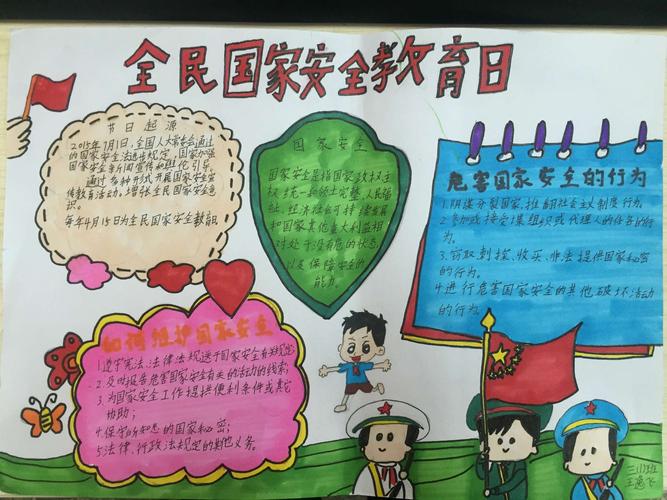 全民国家安全教育日
节日起源
2015年7月1日,全国人大常委会通过
的国家安全法进步规定,国家加强
国家安全新闻宣传和舆论引导
通过各种形式开展国家安全宣
传教育活动,增强全民国家安全意
识。
每年4月15日为全民国家安全教育
国家安全
国家安全是指国家政权主
权统一和领土完整、人民福
祉、经济社会可持续发展
和国家其他重大利益相
对处于没有危的状态,
以及保障安全的
能力。
危害国家安全的行为
1.阴谋分裂国家,推翻社会主义制度行为。
2.参加或接受谍组织或代理人的任务的行
为。
3.窃取刺探、收买、非法提供国家秘密
的行为。
4.进行危害国家安全的其他破坏活动
的行为。
如何维护国家安全
1.遵守宪法、法律法规关于国家安全有关规定
2.及时报告危害国家安全有关的活动的线索;
3.为国家安全工作提供便利条件或其它
协助;
4.保守所知悉的国家秘密;
5.法律、行政法规定的其他义务。
三(1)班
王逸飞